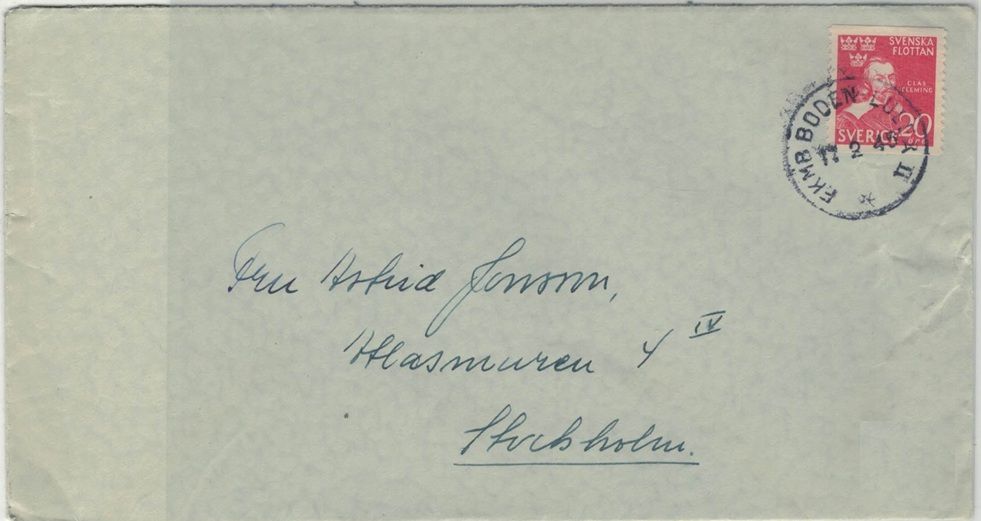 SVENSKA
FLOTTAN
CLAS
FLEMING
SVERIGE 20
ÖRE
FKMB BODEN II
17 2 45
Fru Astrid Jonsson,
Atlasmuren 4 IV
Stockholm.